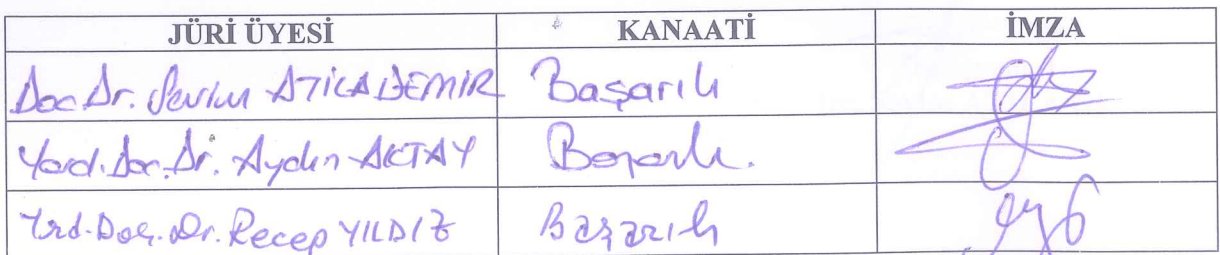 JÜRİ ÜYESİ KANAATİ İMZA
Doc.Dr. Sevim ATİLA DEMİR Başarılı
Yard.Doc.Dr. Aydın AKTAY Başarılı.
Yrd.Doç.Dr. Recep YILDIZ Başarılı